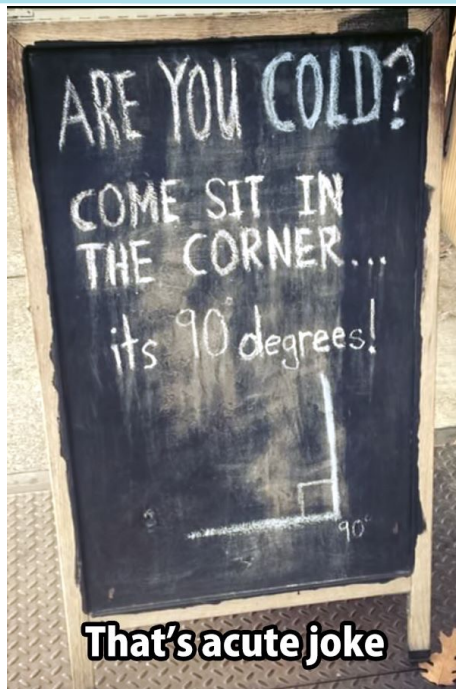 ARE YOU COLD?
COME SIT IN
THE CORNER...
its 90° degrees!
90°
That's acute joke